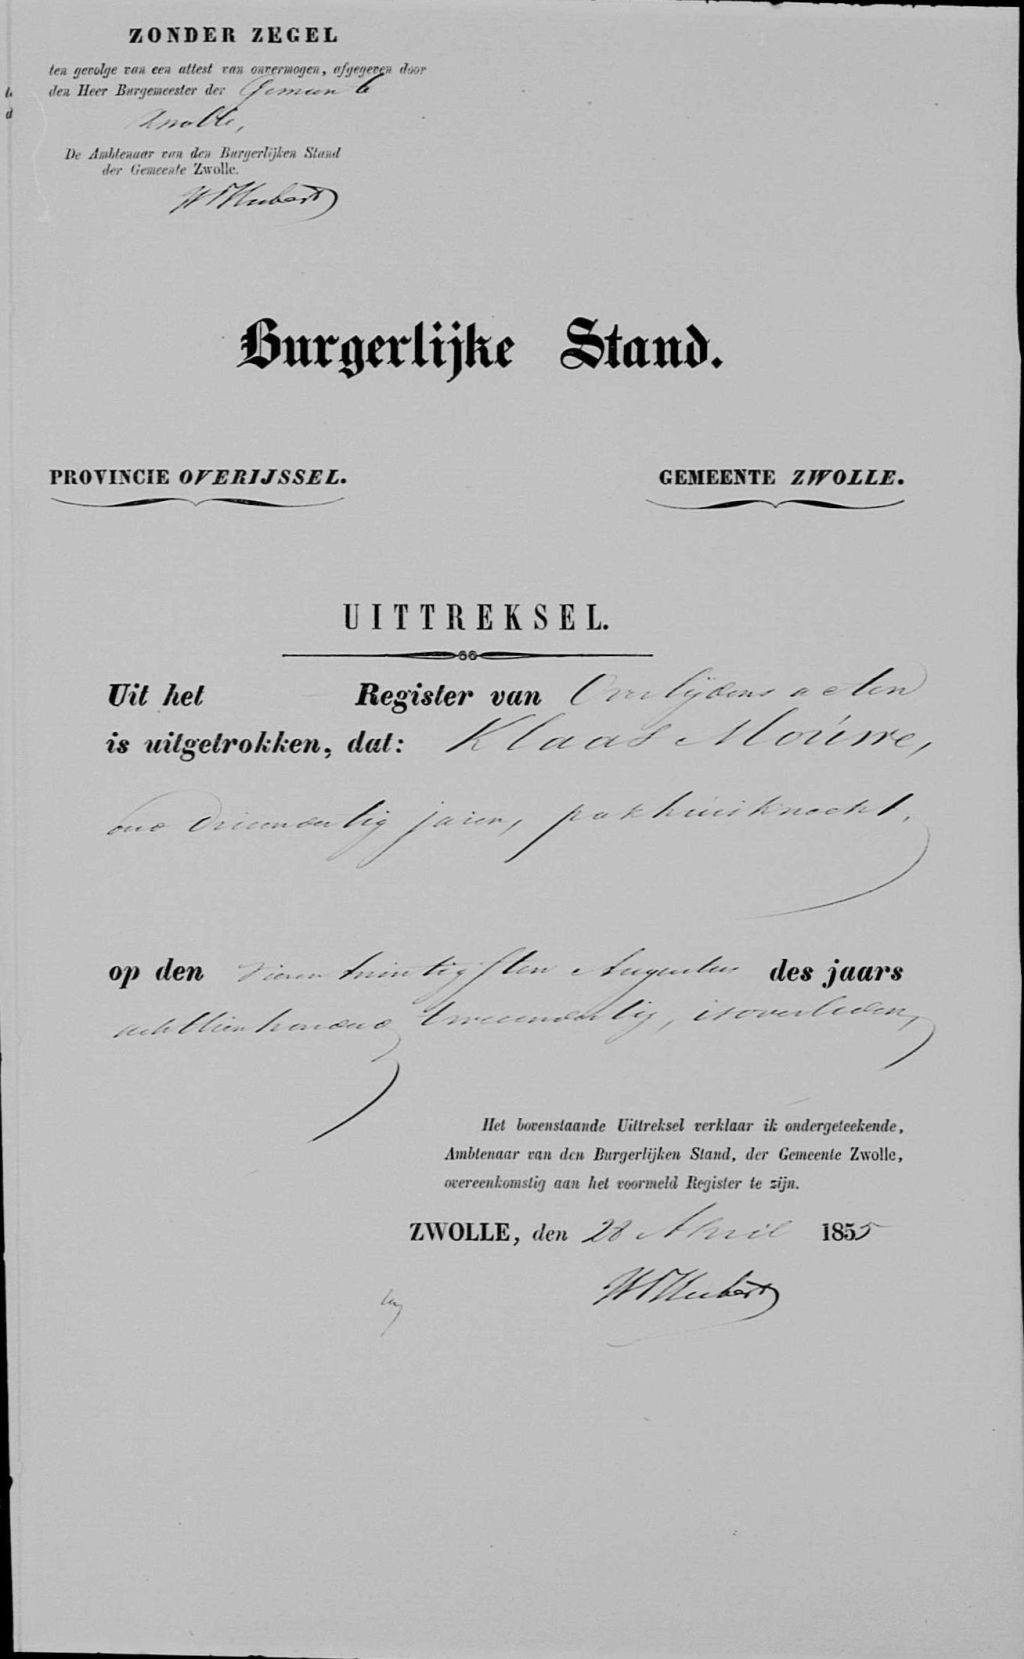 ZONDER ZEGEL
ten gevolge van een attest van onvermogen, afgegeven door
den Heer Burgemeester der Gemeente
Zwolle,
De Ambtenaar van den Burgerlijken Stand
der Gemeente Zwolle.
Burgerlijke Stand.
PROVINCIE OVERIJSSEL. GEMEENTE ZWOLLE.
UITTREKSEL.
Uit het Register van Overlijdens acten
is uitgetrokken, dat: Klaas
oud drieendertig jaren, pakhuisknecht,
op den vierentwintigsten Augustus des jaars
achttienhonderd tweeendertig, is overleden,
Het bovenstaande Uittreksel verklaar ik ondergeteekende,
Ambtenaar van den Burgerlijken Stand, der Gemeente Zwolle,
overeenkomstig aan het voormeld Register te zijn.
ZWOLLE, den 28 April 1855